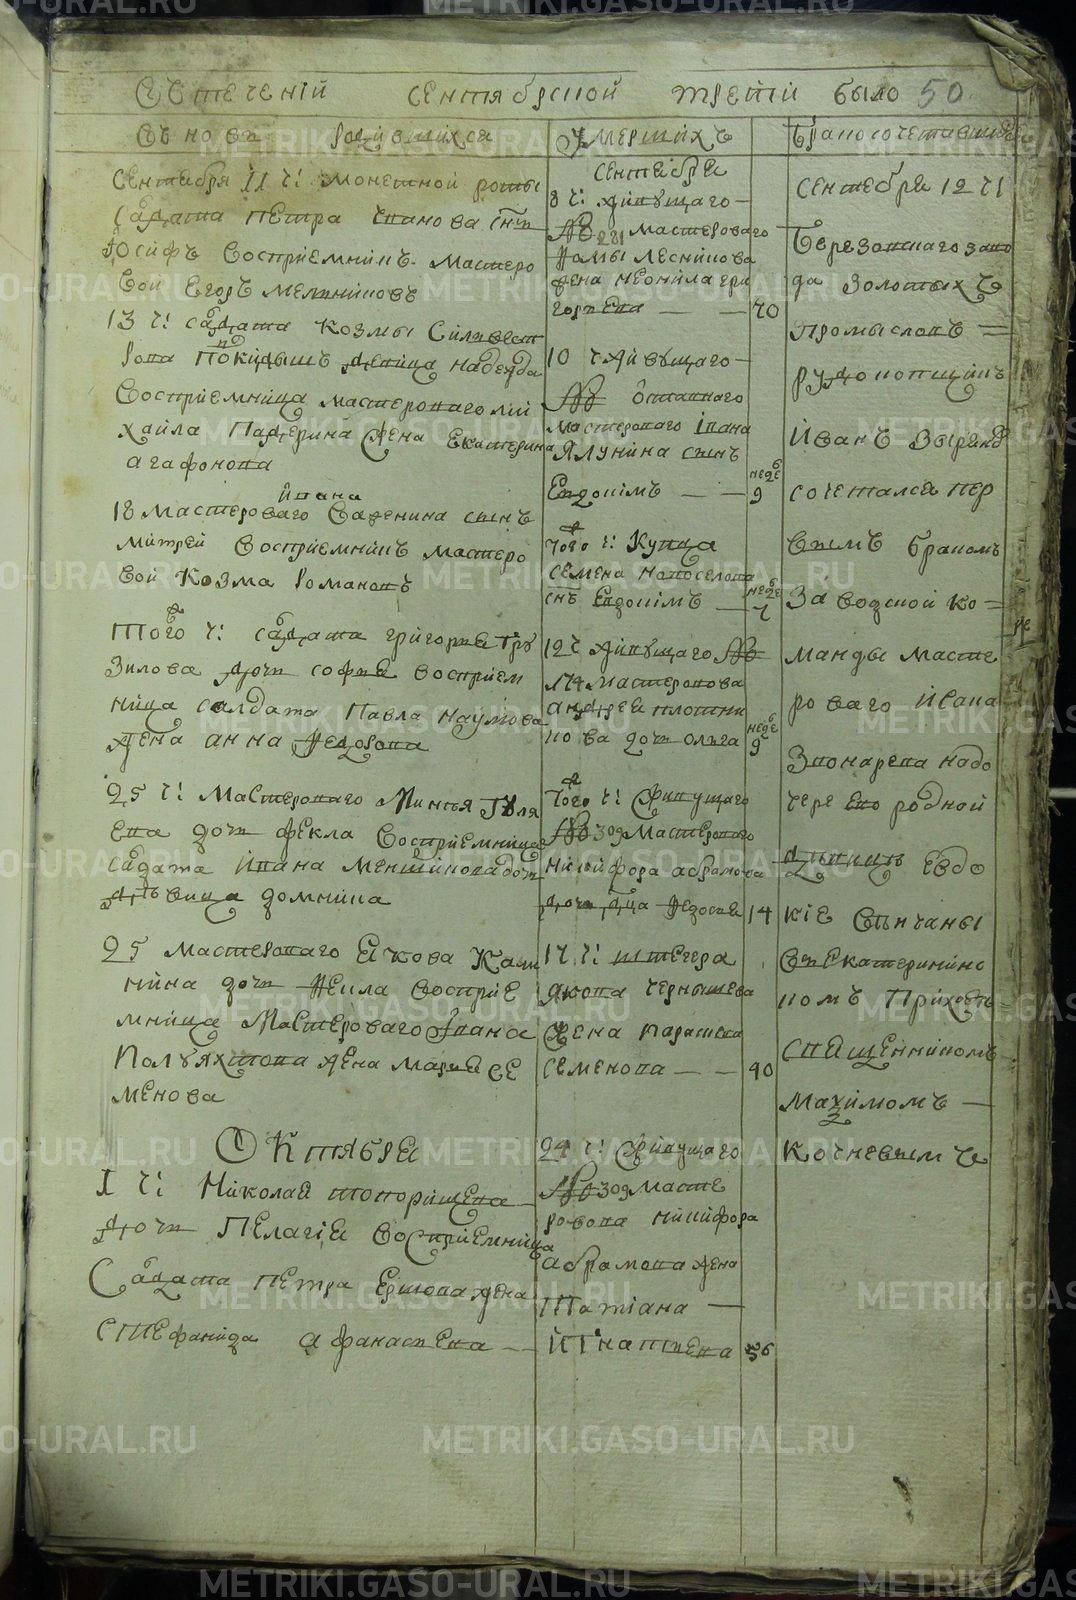 Въ течений сентябрской трети было 50
Въ новъ родившихся
Сентября 11 ч: монетной роты
салдата Петра Иванова снъ
Иосифъ восприемникъ мастеро
вой Егоръ Мельниковъ
13 ч: салдата Козмы Силивест
рова подкидышъ девица надежда
восприемница мастероваго ми
хайла Падерина жена Екатерина
агафонова
18 мастероваго Ивана Важенина сынъ
митрей восприемникъ мастеро
вой Козма романовъ
Того ж ч: салдата григорья Тру
зилова дочь софья восприем
ница солдата Павла наумова
жена анна Федорова
25 ч: мастероваго
ева дочь фекла восприемница
салдата ивана меншикова дочь
девица домника
25 мастероваго Якова
нина дочь Неила восприе
мница мастероваго Ивана
Полуяхтова жена марья се
менова
Октября
1 ч: Николай топорищева
дочь Пелагия восприемница
салдата Петра Ершова жена
стефанида афанасьева
умершихъ
сентября
8 ч: живущаго
в № 281 мастероваго
Фомы лесникова
жена неонила гри
горьева 70
10 ч живущаго
в № отставнаго
мастероваго Ивана
Ялунина сынъ
Евдокимъ 9 неде
Того ж ч: купца
семена новоселова
снъ Евдокимъ 7 неде
12 ч живущаго в №
174 мастеровова
андрея плотни
кова дочь ольга 9 неде
Того ж ч: живущаго
в № 309 мастероваго
никифора абрамова
дочь двца Федосья 14
17 ч: штегера
якова чернышева
жена парасковья
семенова 40
24 ч: живущаго
в № 309 масте
ровова никифора
абрамова жена
татиана
игнатьева 56
бракосочетавшихся
сентября 12 ч
Березовскаго заво
да золотыхъ
промысловъ
рудокопщикъ
Иванъ Зырянов
сочетался пер
вымъ бракомъ
заводской ко
манды масте
роваго ивана
Звонарева на до
чере ево родной
девице Евдо
кие венчаны
въ Екатерининс
комъ приходе
священникомъ
Махимомъ
Кочневымъ
METRIKI.GASO-URAL.RU